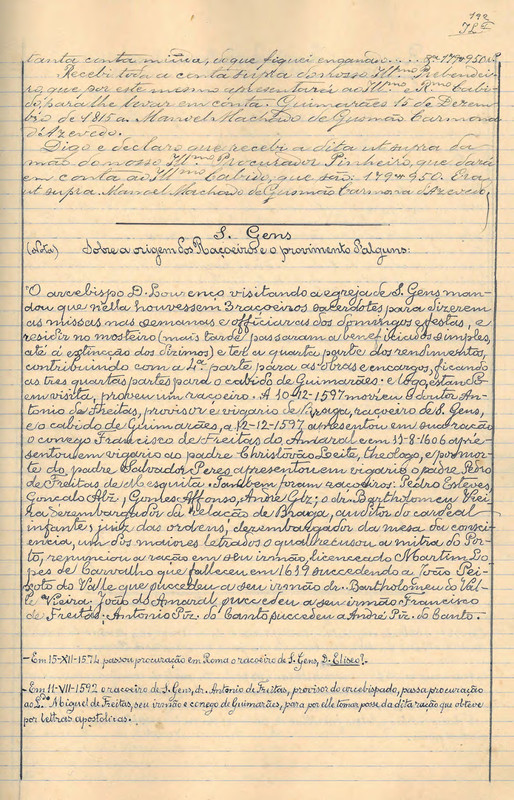 192
tanta conta miuda, do que fiquei enganão.... Rs 179#950
Recebi toda a conta supra do nosso Ill.mo Prebendei-
ro, que por este mesmo apresentarei ao Ill.mo e R.mo Cabi-
do, para lhe levar em conta. Guimarães 15 de Dezem-
bro de 1815 a. Manoel Machado de Gusmão Carmona
d'Azevedo.
Digo e declaro que recebi a dita ut supra da
mão do nosso Ill.mo Procurador Pinheiro, que dará
em conta ao Ill.mo Cabido, que são: 179#950. Era
ut supra. Manoel Machado de Gusmão Carmona d'Azevedo.
S. Gens
(Nota) Sobre a origem dos Raçoeiros e o provimento d'alguns:
O arcebispo D. Lourenço visitando a egreja de S. Gens man-
dou que nella houvessem 3 raçoeiros sacerdotes para dizerem
as missas nas semanas e officiar aos domingos e festas, e
residir no mosteiro (mais tarde passaram a beneficiados simples,
até á extincção dos dizimos) e ter a quarta parte dos rendimentos,
contribuindo com a 4ª parte para as obras e encargos, ficando
as tres quartas partes para o cabido de Guimarães: e logo, estando
em visita, proveu um raçoeiro. A 10-12-1597 morreu o doutor An-
tonio de Freitas, provisor e vigario de Braga, raçoeiro de S. Gens,
e o cabido de Guimarães, a 12-12-1597 apresentou em sua ração
o conego Francisco de Freitas do Amaral e em 11-8-1606 apre-
sentou em vigario ao padre Christovão Leite, theologo, e por mor-
te do padre Salvador Peres apresentou em vigario o padre Pedro
de Freitas de Mesquita. Tambem foram raçoeiros: Pedro Esteves,
Gonçalo Alz; Gomes Affonso, André Glz; o dr. Bartholomeu Viei-
ra desembargador da Relação de Braga, auditor do cardeal
infante, juiz das ordens, dezembargador da mesa da consci-
encia, um dos maiores letrados o qual recusou a mitra do Por-
to, renunciou a ração em seu irmão, licenceado Martim Lo-
pes de Carvalho que falleceu em 1639 succedendo a João Pei-
xoto do Valle que succedeu a seu irmão dr. Bartholomeu do Val-
le Vieira, João do Amaral succedeu a seu irmão Francisco
de Freitas; Antonio Piz. do Canto succedeu a André Piz. do Canto.
- Em 15-XII-1574 passou procuração em Roma o raçoeiro de S. Gens, D. Eliseo?.
- Em 11-VII-1592 o raçoeiro de S. Gens, dr. Antonio de Freitas, provisor do arcebispado, passa procuração
ao L.do Miguel de Freitas, seu irmão e conego de Guimarães, para por elle tomar posse da dita ração que obteve
por lettras apostolicas.